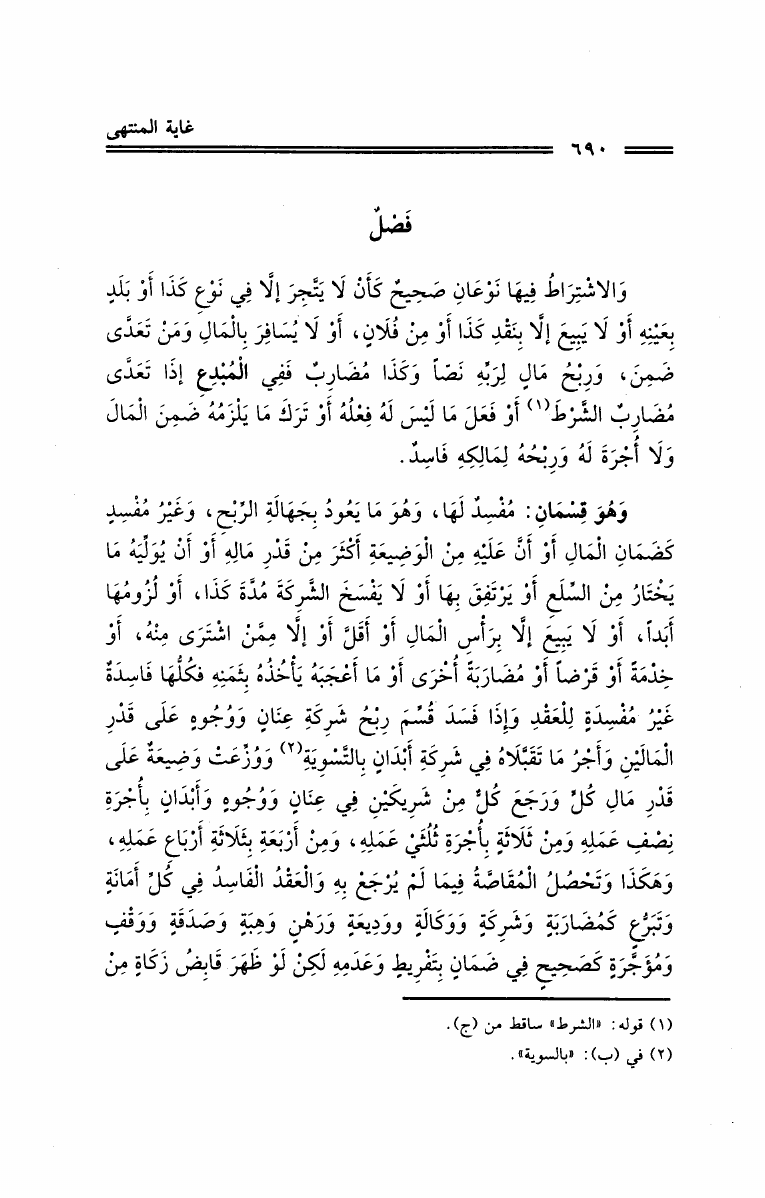 غاية المنتهى
٦٩٠
فَصْلٌ
وَالاشْتِرَاطُ فِيهَا نَوْعَانِ صَحِيحٌ كَأَنْ لَا يَتَّجِرَ إلَّا فِي نَوْعِ كَذَا أَوْ بَلَدٍ
بِعَيْنِهِ أَوْ لَا يَبِيعَ إلَّا بِنَقْدِ كَذَا أَوْ مِنْ فُلَانٍ، أَوْ لَا يُسَافِرَ بِالْمَالِ وَمَنْ تَعَدَّى
ضَمِنَ، وَرِبْحُ مَالٍ لِرَبِّهِ نَصّاً وَكَذَا مُضَارِبٌ فَفِي الْمُبْدِعِ إذَا تَعَدَّى
مُضَارِبٌ الشَّرْطَ(١) أَوْ فَعَلَ مَا لَيْسَ لَهُ فِعْلُهُ أَوْ تَرَكَ مَا يَلْزَمُهُ ضَمِنَ الْمَالَ
وَلَا أُجْرَةَ لَهُ وَرِبْحُهُ لِمَالِكِهِ فَاسِدٌ.
وَهُوَ قِسْمَانِ: مُفْسِدٌ لَهَا، وَهُوَ مَا يَعُودُ بِجَهَالَةِ الرِّبْحِ، وَغَيْرُ مُفْسِدٍ
كَضَمَانِ الْمَالِ أَوْ أَنَّ عَلَيْهِ مِنْ الْوَضِيعَةِ أَكْثَرَ مِنْ قَدْرِ مَالِهِ أَوْ أَنْ يُوَلِّيَهُ مَا
يَخْتَارُ مِنْ السِّلَعِ أَوْ يَرْتَفِقَ بِهَا أَوْ لَا يَفْسَخَ الشَّرِكَةَ مُدَّةَ كَذَا، أَوْ لُزُومُهَا
أَبَداً، أَوْ لَا يَبِيعَ إلَّا بِرَأْسِ الْمَالِ أَوْ أَقَلَّ أَوْ إلَّا مِمَّنْ اشْتَرَى مِنْهُ، أَوْ
خِدْمَةً أَوْ قَرْضاً أَوْ مُضَارَبَةً أُخْرَى أَوْ مَا أَعْجَبَهُ يَأْخُذُهُ بِثَمَنِهِ فكُلُّهَا فَاسِدَةٌ
غَيْرُ مُفْسِدَةٍ لِلْعَقْدِ وَإِذَا فَسَدَ قُسِّمَ رِبْحُ شَرِكَةِ عِنَانٍ وَوُجُوهٍ عَلَى قَدْرِ
الْمَالَيْنِ وَأَجْرُ مَا تَقَبَّلَاهُ فِي شَرِكَةِ أَبْدَانٍ بِالتَّسْوِيَةِ(٢) وَوُزِّعَتْ وَضِيعَةٌ عَلَى
قَدْرِ مَالِ كُلٍّ وَرَجَعَ كُلٌّ مِنْ شَرِيكَيْنِ فِي عِنَانٍ وَوُجُوهٍ وَأَبْدَانٍ بِأُجْرَةِ
نِصْفِ عَمَلِهِ وَمِنْ ثَلَاثَةٍ بِأُجْرَةِ ثُلُثَيْ عَمَلِهِ، وَمِنْ أَرْبَعَةٍ بِثَلَاثَةِ أَرْبَاعِ عَمَلِهِ،
وَهَكَذَا وَتَحْصُلُ الْمُقَاصَّةُ فِيمَا لَمْ يُرْجَعْ بِهِ وَالْعَقْدُ الْفَاسِدُ فِي كُلِّ أَمَانَةٍ
وَتَبَرُّعٍ كَمُضَارَبَةٍ وَشَرِكَةٍ وَوَكَالَةٍ ووَدِيعَةٍ وَرَهْنٍ وَهِبَةٍ وَصَدَقَةٍ وَوَقْفٍ
وَمُؤَجَّرَةٍ كَصَحِيحٍ فِي ضَمَانٍ بِتَفْرِيطٍ وَعَدَمِهِ لَكِنْ لَوْ ظَهَرَ قَابِضُ زَكَاةٍ مِنْ
(١) قوله: «الشرط» ساقط من (ج).
(٢) في (ب): «بالسوية».